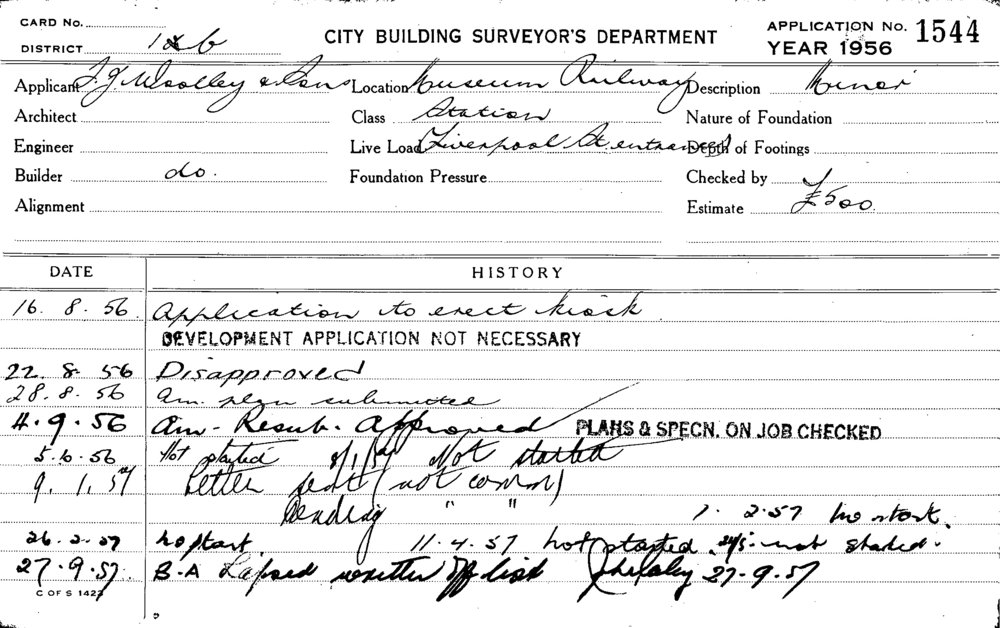 CARD No.
DISTRICT 1 & 6
CITY BUILDING SURVEYOR'S DEPARTMENT
APPLICATION No. 1544
YEAR 1956
Applicant F. J. Woolley & Sons Location Museum Railway Description Minor
Architect Class Station Nature of Foundation
Engineer Live Load Liverpool St. entrance Depth of Footings
Builder do. Foundation Pressure Checked by
Alignment Estimate £500
DATE HISTORY
16. 8. 56 Application to erect kiosk
DEVELOPMENT APPLICATION NOT NECESSARY
22. 8. 56 Disapproved
28. 8. 56 Am. plan submitted
4. 9. 56 Am - Resub. Approved PLANS & SPECN. ON JOB CHECKED
5. 6. 56 Not started 8/1/57 Not started
9. 1. 57 Letter sent (not comm)
Pending " " 7. 2. 57 no start.
26. 2. 57 no start. 11. 4. 57 not started. 24/5 - not started.
27. 9. 57. B.A Lapsed written off list 27. 9. 57
C OF S 1423